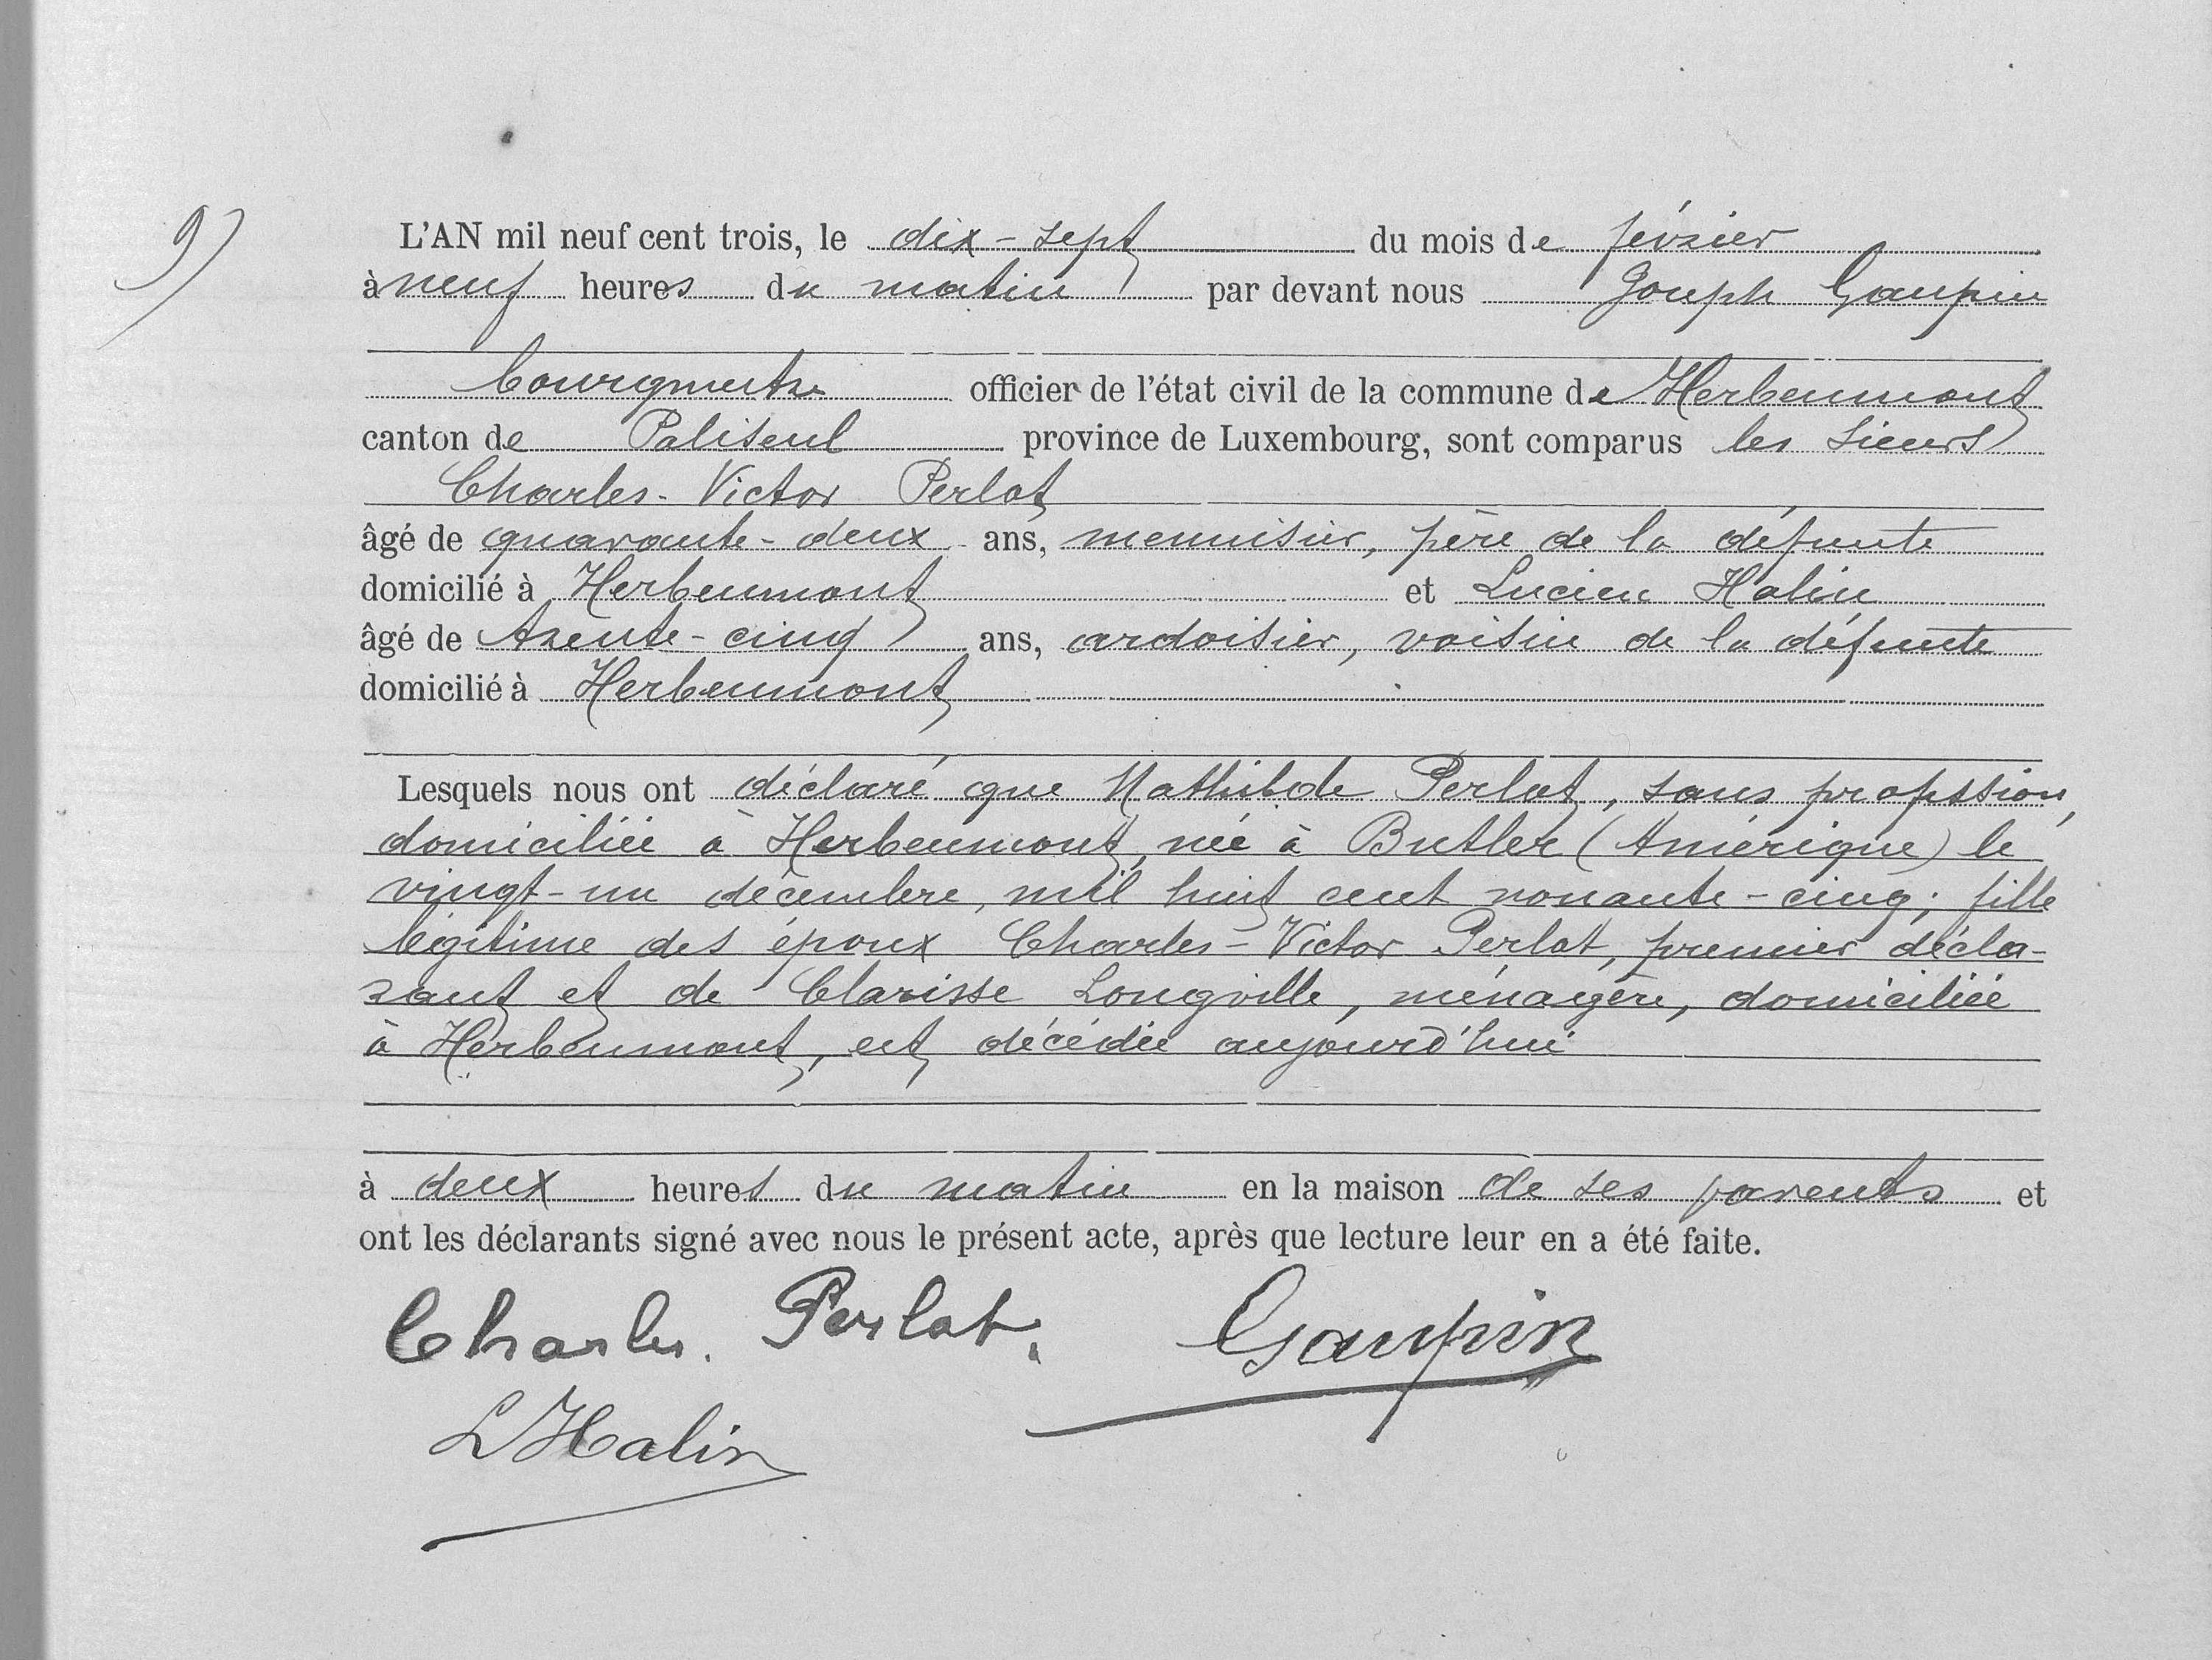 9)
L'AN mil neuf cent trois, le dix-sept du mois de février
à neuf heures du matin par devant nous Joseph Gaupin
bourgmestre officier de l'état civil de la commune de Herbeumont
canton de Paliseul province de Luxembourg, sont comparus les sieurs
Charles-Victor Perlot
âgé de quarante-deux ans, menuisier, père de la défunte
domicilié à Herbeumont et Lucien Halin
âgé de trente-cinq ans, ardoisier, voisin de la défunte
domicilié à Herbeumont
Lesquels nous ont déclaré que Mathilde Perlot, sans profession,
domiciliée à Herbeumont, née à Butler (Amérique) le
vingt-un décembre, mil huit cent nonante-cinq; fille
légitime des époux Charles-Victor Perlot, premier décla-
rant et de Clarisse Longville, ménagère, domiciliée
à Herbeumont, est décédée aujourd'hui
à deux heures du matin en la maison de ses parents et
ont les déclarants signé avec nous le présent acte, après que lecture leur en a été faite.
Charles. Perlot. Gaupin
L Halin